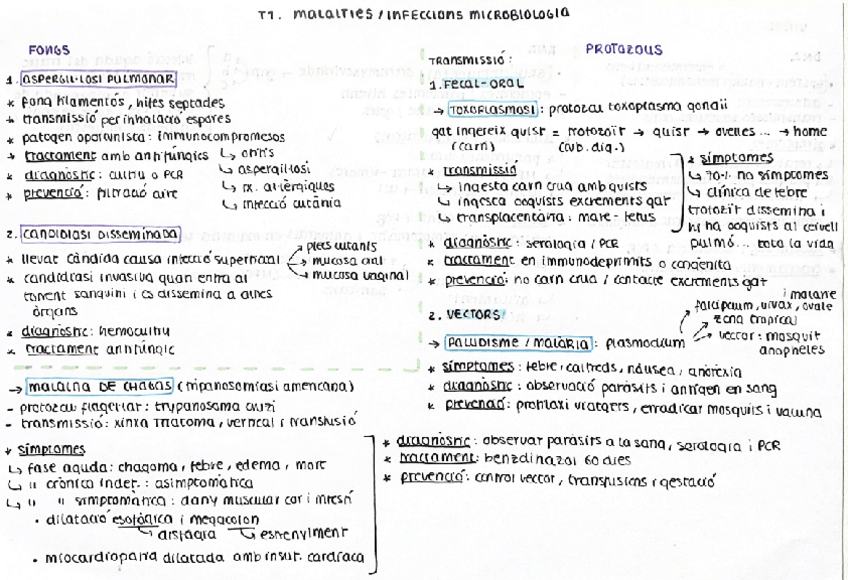 T7. MALALTIES / INFECCIONS MICROBIOLOGIA
FONGS
1. ASPERGIL·LOSI PULMONAR
* fong filamentós, hifes septades
* transmissió per inhalació espores
* patogen oportunista: immunocompromesos
* tractament amb antifúngics
* diagnòstic: cultiu o PCR
* prevenció: filtració aire
↳ otitis
↳ aspergil·losi
↳ rx. al·lèrgiques
↳ infecció cutània
2. CANDIDIASI DISSEMINADA
* llevat càndida causa infecció superficial
→ plecs cutanis
→ mucosa oral
→ mucosa vaginal
* candidiasi invasiva quan entra al
torrent sanguini i es dissemina a altres
òrgans
* diagnòstic: hemocultiu
* tractament antifúngic
→ MALALTIA DE CHAGAS (tripanosomiasi americana)
- protozou flagel·lat: trypanosoma cruzi
- transmissió: xinxa triatoma, vertical i transfusió
* símptomes
↳ fase aguda: chagoma, febre, edema, mort
↳ " crònica indet.: asimptomàtica
↳ " " simptomàtica: dany muscular cor i intestí
· dilatació esofàgica i megacolon
↳ disfàgia ↳ estrenyiment
· miocardiopatia dilatada amb insuf. cardíaca
* diagnòstic: observar paràsits a la sang, serologia i PCR
* tractament: benzdinazol 60 dies
* prevenció: control vector, transfusions i gestació
PROTOZOUS
TRANSMISSIÓ:
1. FECAL-ORAL
→ TOXOPLASMOSI: protozou toxoplasma gondii
gat ingereix quist = protozoït → quist → ovelles ... → home
(carn) (tub. dig.)
* transmissió
↳ ingesta carn crua amb quists
↳ ingesta ooquists excrements gat
↳ transplacentària: mare - fetus
* símptomes
↳ 70-1. no símptomes
↳ clínica de febre
trofozoït dissemina i
hi ha ooquists al cervell
pulmó ... tota la vida
* diagnòstic: serologia / PCR
* tractament en immunodeprimits o congènita
* prevenció: no carn crua / contacte excrements gat
2. VECTORS
→ PALUDISME / MALÀRIA: plasmodium
i malarie
falciparum, vivax, ovale
→ zona tropical
→ vector: mosquit
anopheles
* símptomes: febre, calfreds, nàusea, anorèxia
* diagnòstic: observació paràsits i antigen en sang
* prevenció: profilaxi viatgers, erradicar mosquits i vacuna